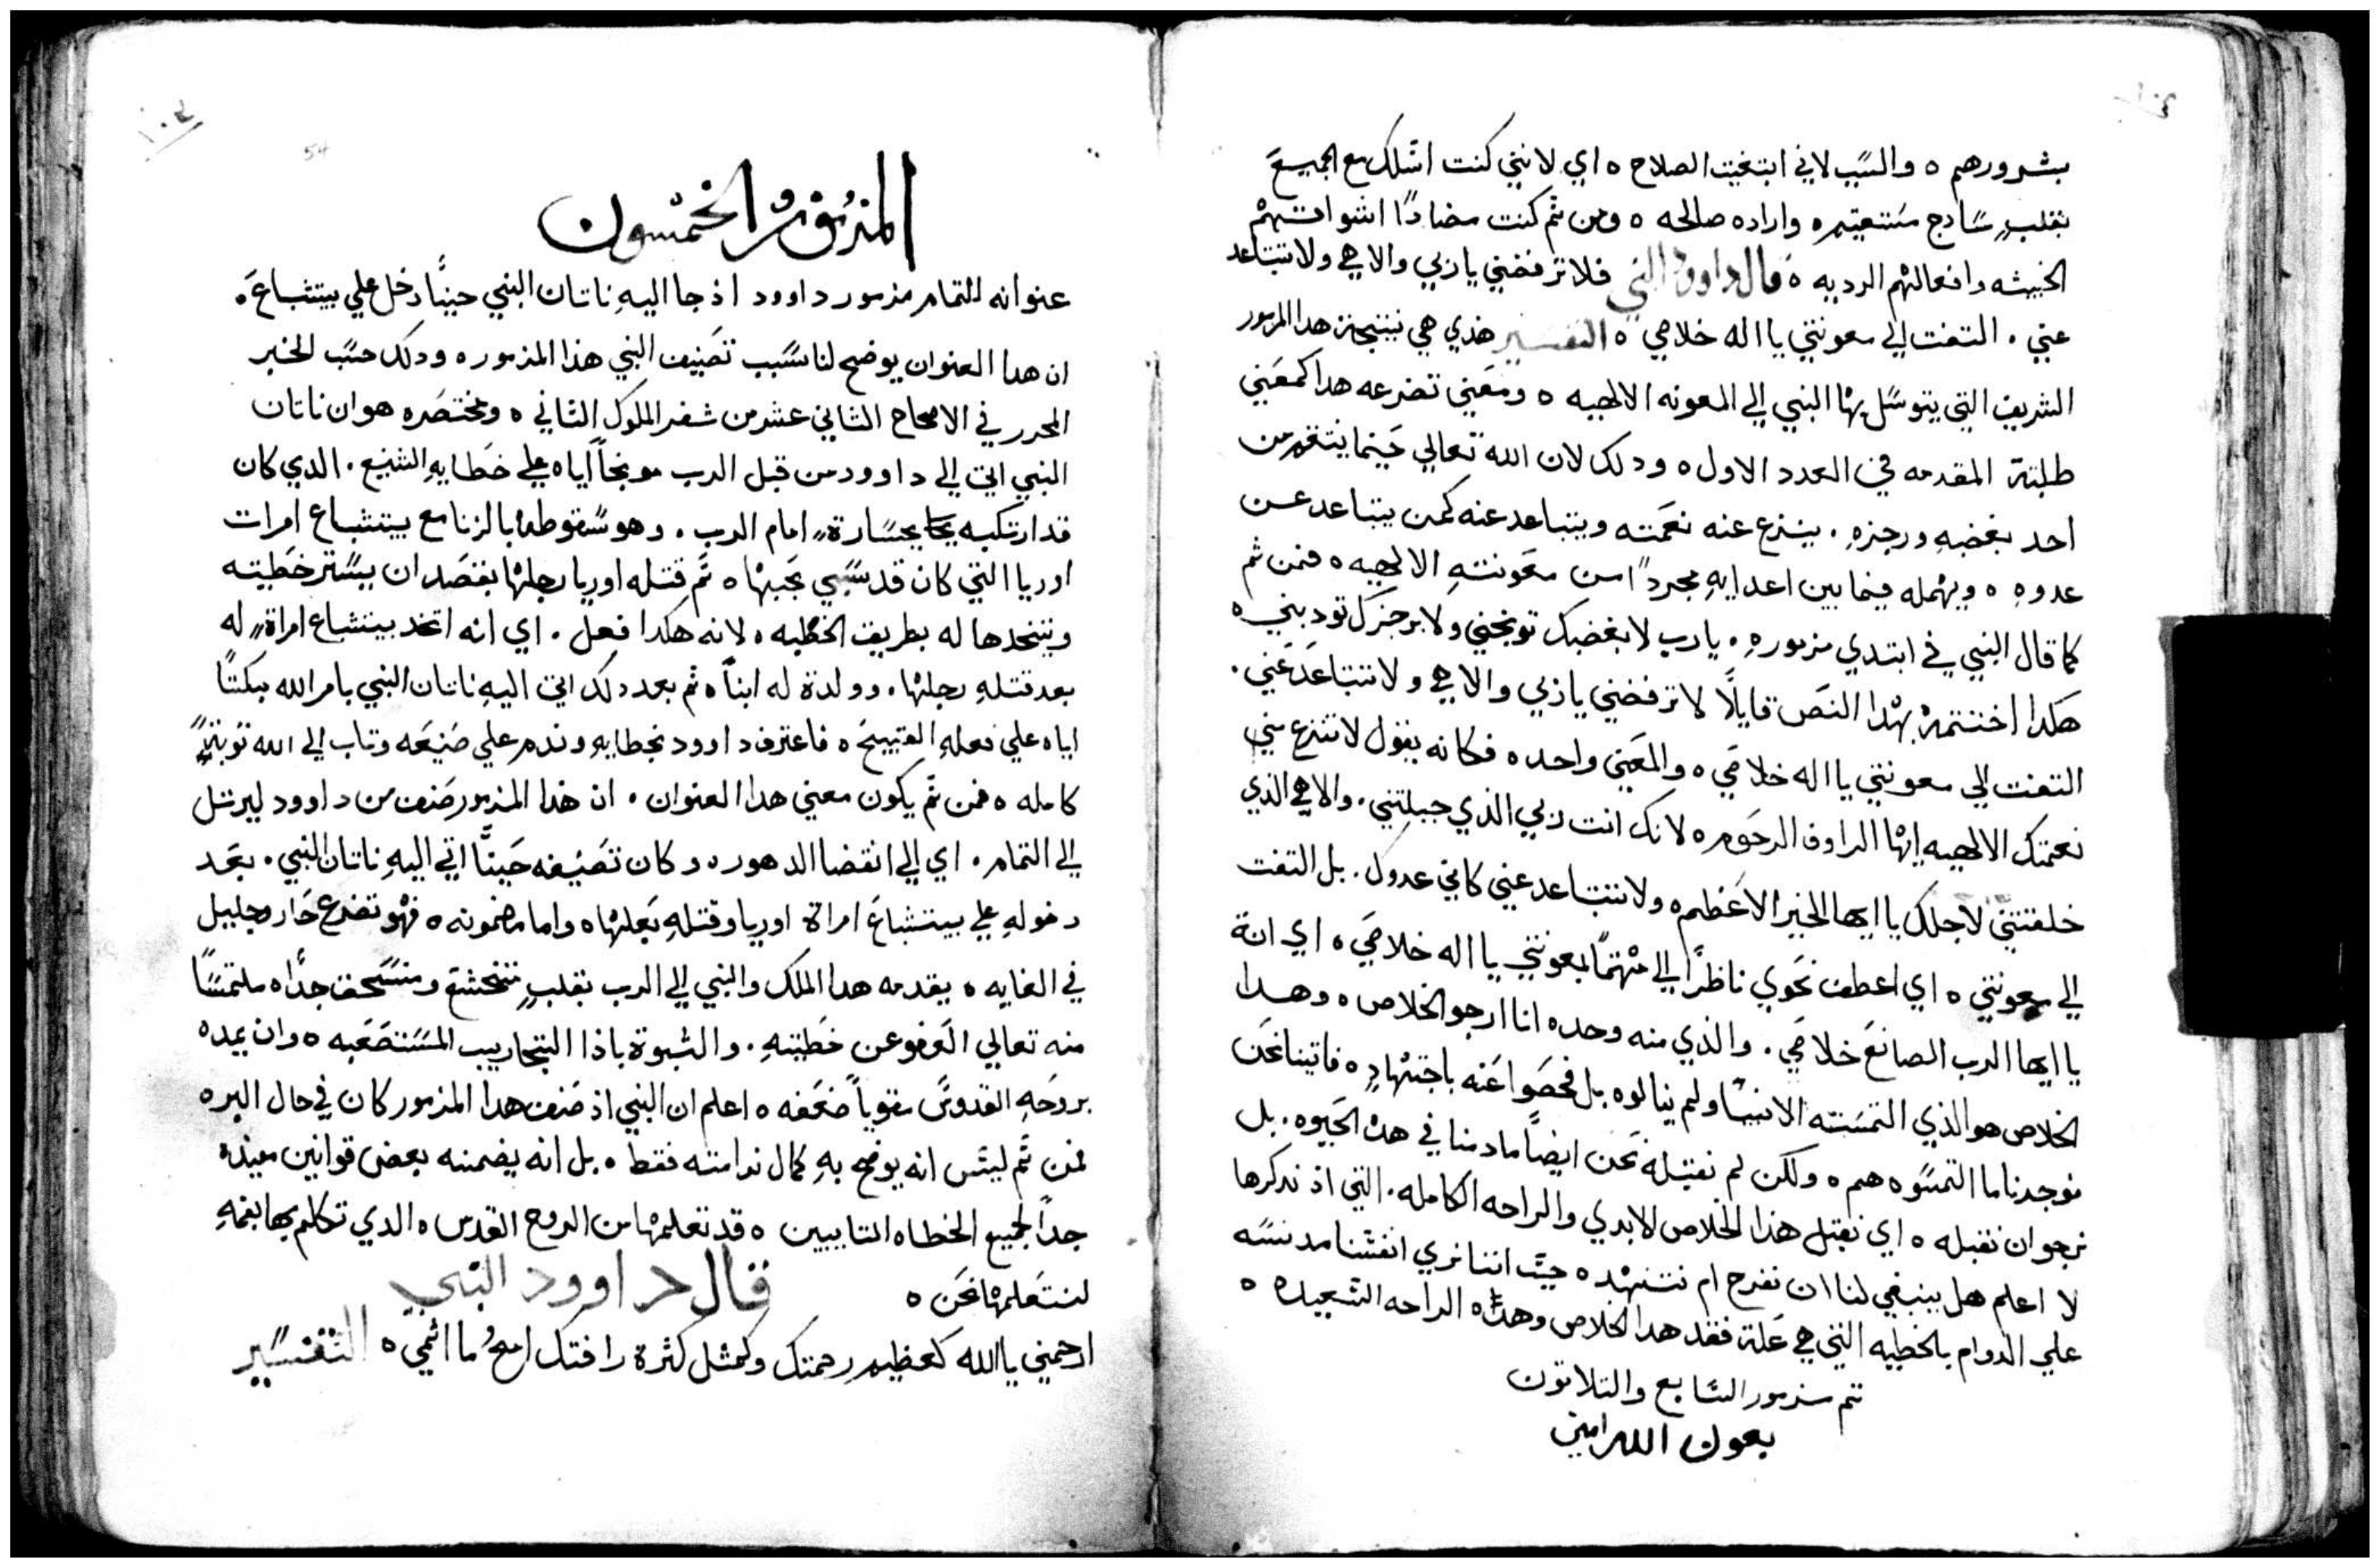 بشرورهم ٥ والسبب لاني ابتغيت الصلاح ٥ اي لانني كنت اسلك مع الجميع
بقلبٍ سادج مستقيم ٥ واراده صالحه ٥ ومن ثم كنت مضادًا اشواقهم
الخبيثه وافعالهم الرديه ٥ قال داوود النبي فلا ترفضني يا ربي والاهي ولا تتباعد
عني . التفت الي معونتي يا اله خلاصي ٥ التفسير هذي هي نتيجة هدا المزمور
الشريف التي يتوسل بها النبي الي المعونه الالهيه ٥ ومعني تضرعه هدا كمعني
طلبته المقدمه في العدد الاول ٥ ودلك لان الله تعالي حينما ينتقم من
احد بغضبهِ ورجزهِ . ينزع عنه نعمته ويتباعد عنه كمن يتباعد عن
عدوهِ ٥ ويهمله فيما بين اعدايهِ مجردًا من معونتهِ الالهيه ٥ فمن ثم
كما قال النبي في ابتدي مزمورهِ . يا رب لا بغضبك توبخني ولا برجزك تودبني ٥
هكدا اختتمه بهدا النص قايلًا لا ترفضني يا ربي والاهي ولا تتباعد عني .
التفت الي معونتي يا اله خلاصي ٥ والمعني واحد ٥ فكانه يقول لا تنزع مني
نعمتك الالهيه ايها الراوف الرحوم ٥ لانك انت ربي الذي جبلتني . والاهي الذي
خلقتني لاجلك يا ايها الخير الاعظم ٥ ولا تتباعد عني كاني عدوك . بل التفت
الي معونتي ٥ اي اعطف نحوي ناظرًا الي مهتمًا بمعونتي يا اله خلاصي ٥ اي انت
يا ايها الرب الصانع خلاصي . والذي منه وحده انا ارجو الخلاص ٥ وهدا
الخلاص هو الذي التمسته الانبيا ولم ينالوه بل فحصوا عنه باجتهادٍ ٥ فاتينا نحن
فوجدنا ما التمسوه هم ٥ ولكن لم نقبله نحن ايضًا مادمنا في هده الحيوه . بل
نرجو ان نقبله ٥ اي نقبل هذا الخلاص الابدي والراحه الكامله . التي اذ ندكرها
لا اعلم هل ينبغي لنا ان نفرح ام نتنهد ٥ حيث اننا نري انفسنا مدنسه
علي الدوام بالخطيه التي هي علة فقد هدا الخلاص وهده الراحه السعيده ٥
تم مزمور السابع والتلاتون
بعون الله امين
المزمور الخمسون
عنوانه للتمام مزمور داوود اذ جا اليهِ ناتان النبي حينًا دخل علي بيتشباع ٥
ان هدا العنوان يوضح لنا سبب تصنيف النبي هذا المزمور ٥ ودلك حسب الخبر
المحرر في الاصحاح الثاني عشر من سفر الملوك الثاني ٥ ومختصره هو ان ناتان
النبي اتي الي داوود من قبل الرب موبخًا اياه علي خطايهِ الشنيع . الدي كان
قد ارتكبه بجسارةٍ امام الرب . وهو سقوطه بالزنا مع بيتشباع امرات
اوريا التي كان قد سبي بحبها ٥ ثم قتله اوريا رجلها بقصد ان يستر خطيته
ويتخدها له بطريق الخطبه ٥ لانه هكدا فعل . اي انه اتخد بيتشباع امراةٍ له
بعد قتلهِ رجلها ٥ وولدة له ابنًا ٥ ثم بعد دلك اتي اليهِ ناتان النبي بامر الله مبكتًا
اياه علي فعلهِ القبيح ٥ فاعترف داوود بخطايهِ وندم علي صنيعه وتاب الي الله توبةً
كامله ٥ فمن ثم يكون معني هدا العنوان . ان هذا المزمور صنف من داوود ليرتل
الي التمام . اي الي انقضا الدهور ٥ وكان تصنيفه حينًا اتي اليهِ ناتان النبي . بعد
دخولهِ علي بيتشباع امراة اوريا وقتلهِ بعلها ٥ واما مضمونه ٥ فهو تضرع حار وجليل
في الغايه ٥ يقدمه هدا الملك والنبي الي الرب بقلبٍ متخشع ومنسحق جدًا ٥ ملتمسًا
منه تعالي العفو عن خطيتهِ . والتبوة باذا التجاريب المستصعبه ٥ وان يمده
بروحهِ القدوس مقويًا ضعفه ٥ اعلم ان النبي اذ صنف هدا المزمور كان في حال البر ٥
فمن ثم ليس انه يوضح بهِ كمال ندامته فقط ٥ بل انه يضمنه بعض قوانين مفيده
جدًا لجميع الخطاه التايبين ٥ قد تعلمها من الروح القدس ٥ الدي تكلم بها بفمهِ
لنتعلمها نحن ٥ قال داوود النبي
ارحمني يا الله كعظيم رحمتك وكمثل كثرة رافتك امحُ ما اثمي ٥ التفسير